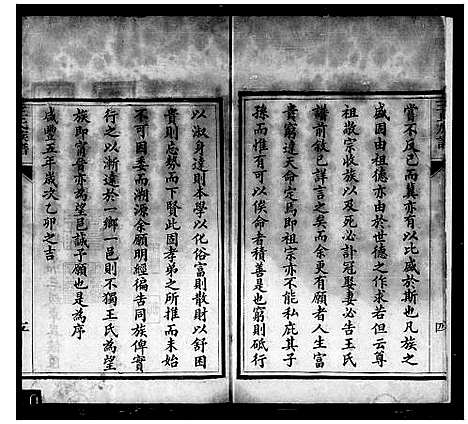 嘗不反己而冀亦有以比盛於斯也凡族之
盛固由祖德亦由於世德之作求若但云尊
祖敬宗收族以及死必訃冠娶妻必告王氏
譜前敘已詳言之矣而余更有願者人生富
貴窮達天命定焉即祖宗亦不能私庇其子
孫而惟有可以俟命者積善是也窮則砥行
四
以淑身達則本學以化俗富則散財以舒困
貴則忘然而下賢此固孝弟之所推而未始
不可因委而溯源余願明經徧告同族俾實
行之以漸達於一鄉一邑則不獨王氏為望
族即甯晉亦為望邑誠予願也是為序
咸豐五年歲次乙卯之吉
五